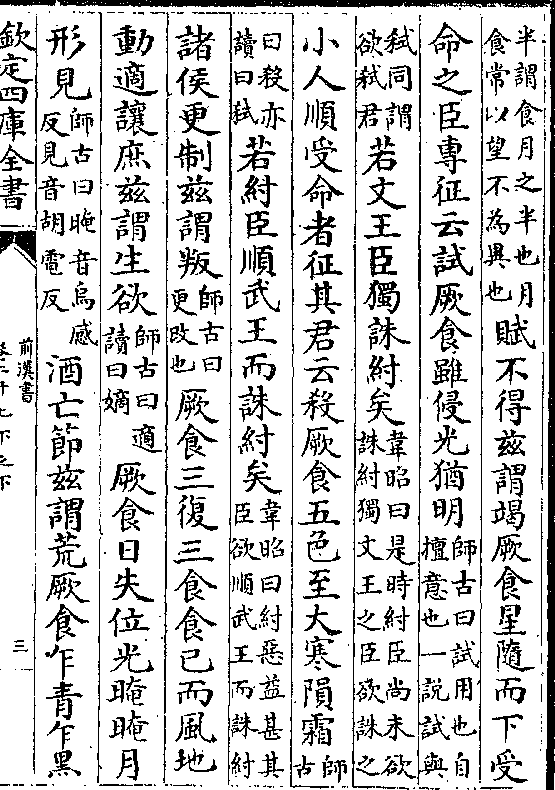 半謂食月之半也月食常以望不為異也賦不得茲謂竭厥食星隨而下受
命之臣專征云試厥食雖侵光猶明師古曰試用也自擅意也一說試與
弑同謂欲弑君若文王臣獨誅紂矣韋昭曰是時紂臣尚未欲誅紂獨文王之臣欲誅之
小人順受命者征其君云殺厥食五色至大寒隕霜師古
曰殺亦讀曰弑若紂臣順武王而誅紂矣韋昭曰紂惡益甚其臣欲順武王而誅紂
諸侯更制茲謂叛師古曰更改也厥食三復三食食已而風地
動適讓庶茲謂生欲師古曰適讀曰嫡厥食日失位光晻晻月
形見師古曰晻音烏感反見音胡電反酒亡節茲謂荒厥食乍青乍黑
欽定四庫全書
前漢書
卷二十七下之下
三